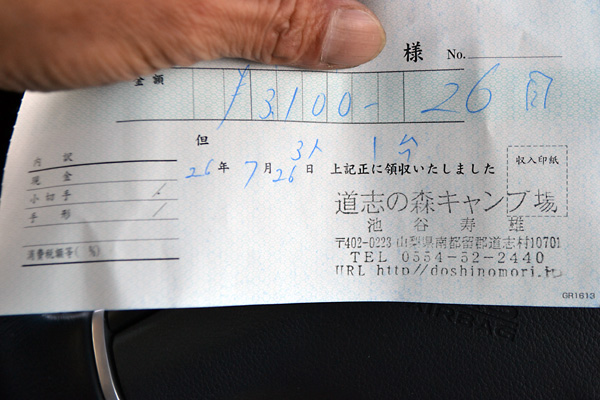 様 No.
金額 ¥3,100- 26
但 3人 1台
26年 7月26日 上記正に領収いたしました
収入印紙
内訳
現金
小切手
手形
消費税額等( %)
道志の森キャンプ場
池谷寿雄
〒402-0223 山梨県南都留郡道志村10701
TEL 0554-52-2440
URL http://doshinomori.jp
GR1613
AIRBAG